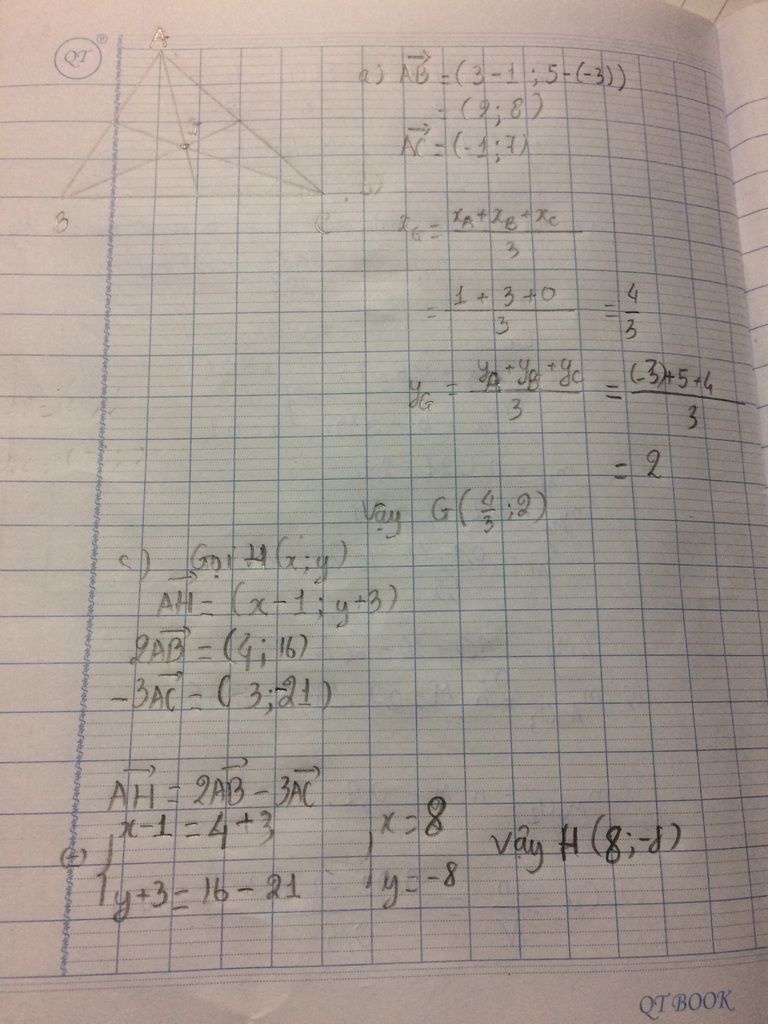 QT®
A
G
B
C
a) AB→ = (3-1; 5-(-3))
= (2; 8)
AC→ = (-1; 7)
b)
x_G = (x_A + x_B + x_C)/3
= (1 + 3 + 0)/3 = 4/3
y_G = (y_A + y_B + y_C)/3 = ((-3)+5+4)/3
= 2
Vậy G(4/3; 2)
c) Gọi H(x; y)
AH→ = (x-1; y+3)
2AB→ = (4; 16)
-3AC→ = (3; -21)
AH→ = 2AB→ - 3AC→
x-1 = 4+3 x = 8
(+) Vậy H (8; -8)
y+3 = 16 - 21 y = -8
QT BOOK